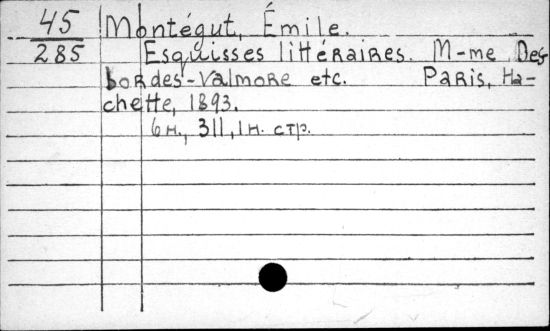 45 Montégut, Émile.
285 Esquisses littéraires. M-me Des-
bordes-Valmore etc. Paris, Ha-
chette, 1893.
6 н., 311, 1 н. стр.